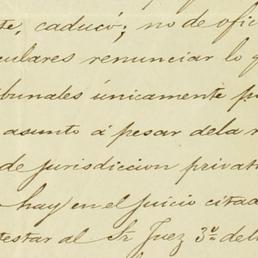 te, caducó; no de ofic
culares renunciar lo q
ibunales únicamente p
asunto á pesar dela r
de jurisdiccion privat
hay en el juicio citad
testar al Sr Juez 3º del